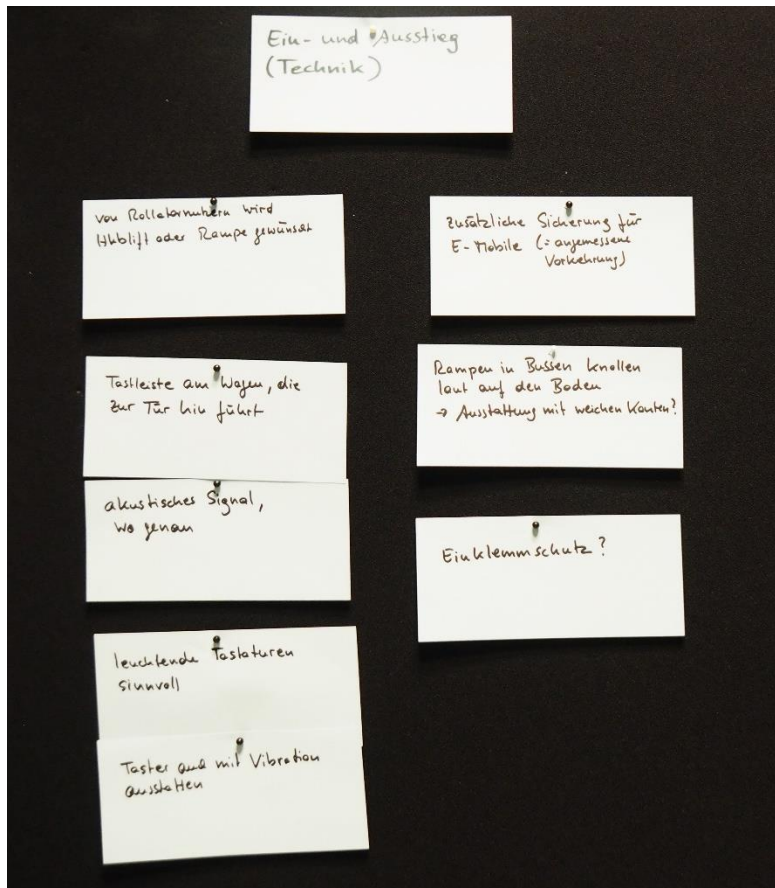 Ein- und Ausstieg
(Technik)
von Rollatornutzern wird
Hublift oder Rampe gewünscht
Tastleiste am Wagen, die
zur Tür hin führt
akustisches Signal,
wo genau
leuchtende Tastaturen
sinnvoll
Taster auch mit Vibration
ausstatten
zusätzliche Sicherung für
E-Mobile (= angemessene
Vorkehrung)
Rampen in Bussen knallen
laut auf den Boden
→ Ausstattung mit weichen Kanten?
Einklemmschutz?